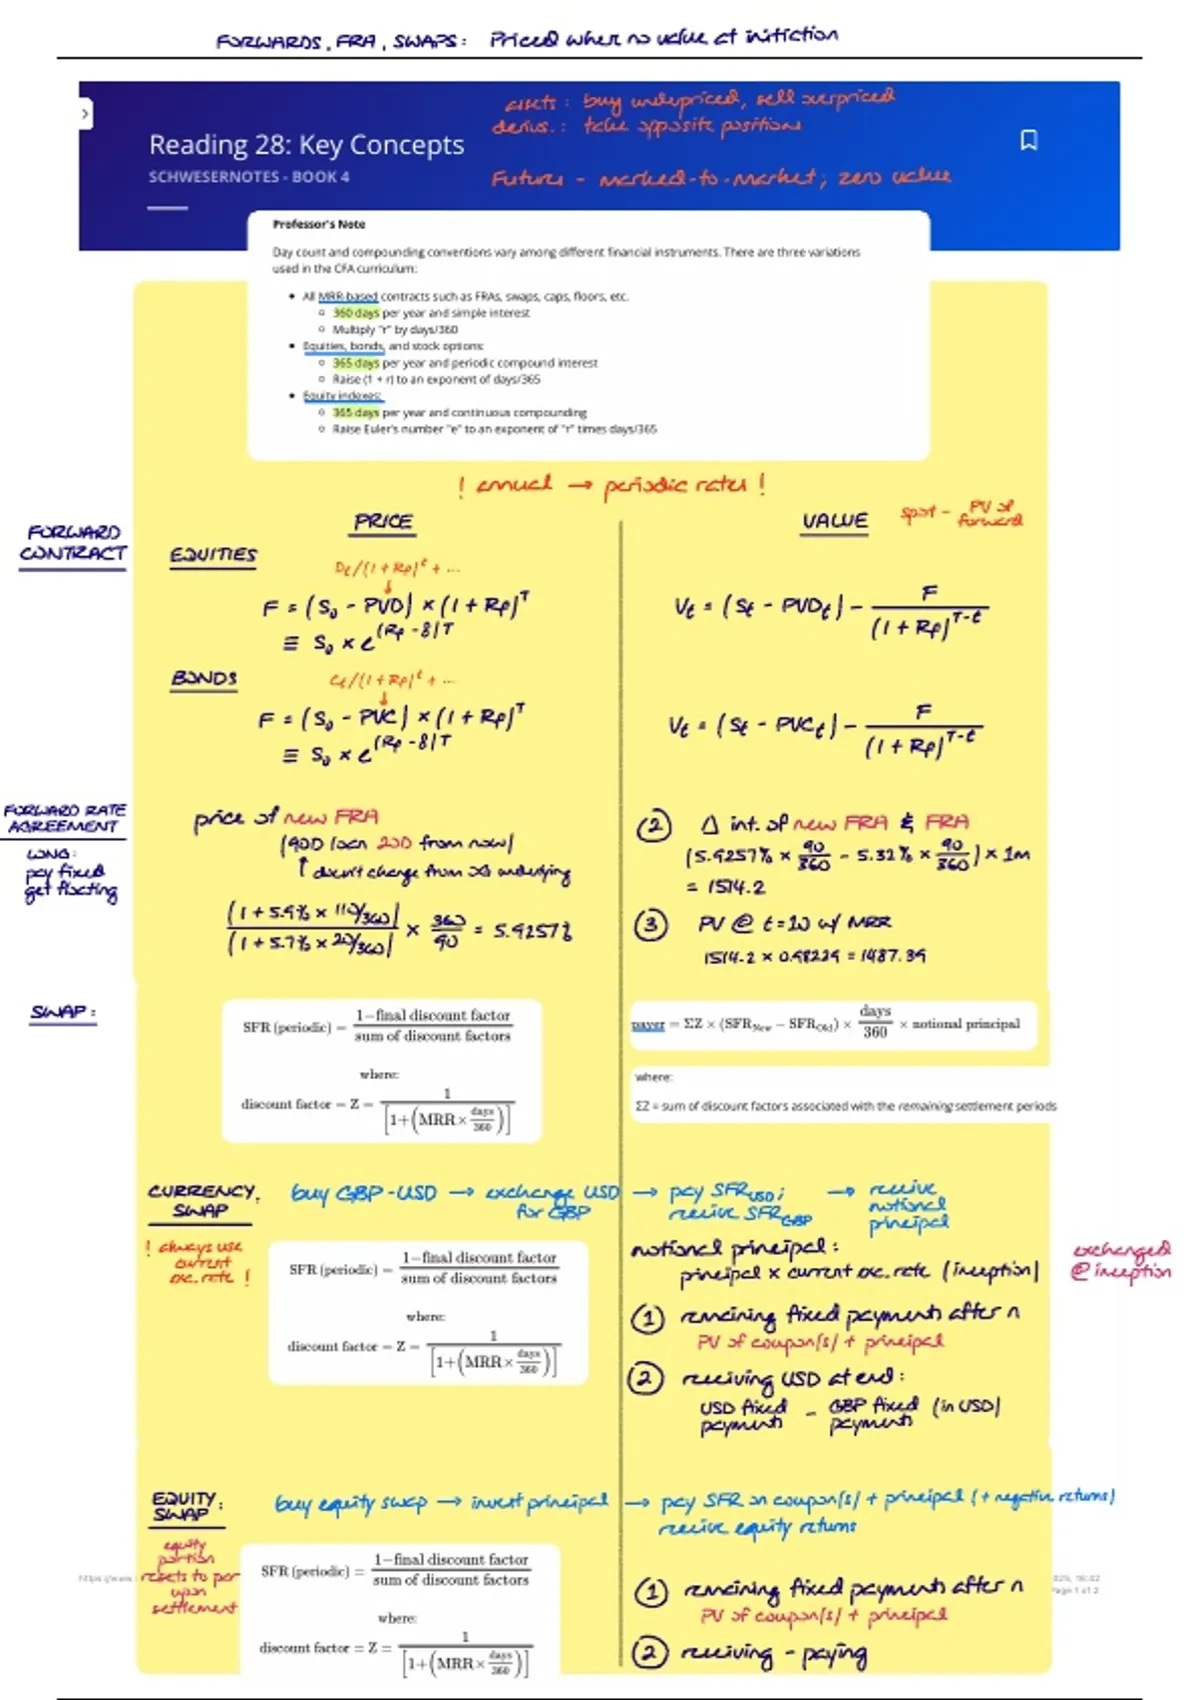 FORWARDS, FRA, SWAPS: Priced when no value at initiation
assets: buy underpriced, sell overpriced
derivs.: take opposite positions
Reading 28: Key Concepts
SCHWESERNOTES - BOOK 4
Futures - marked-to-market; zero value
Professor's Note
Day count and compounding conventions vary among different financial instruments. There are three variations
used in the CFA curriculum:
• All MRR-based contracts such as FRAs, swaps, caps, floors, etc.
○ 360 days per year and simple interest
○ Multiply "r" by days/360
• Equities, bonds, and stock options:
○ 365 days per year and periodic compound interest
○ Raise (1 + r) to an exponent of days/365
• Equity indexes:
○ 365 days per year and continuous compounding
○ Raise Euler's number "e" to an exponent of "r" times days/365
! annual → periodic rates !
FORWARD
CONTRACT
PRICE
VALUE
spot - PV of
forward
EQUITIES
Dt/(1+Rf)^t + ...
F = (S0 - PVD) × (1+Rf)^T
≡ S0 × e^(Rf - δ)T
Vt = (St - PVDt) - F/(1+Rf)^T-t
BONDS
Ct/(1+Rf)^t + ...
F = (S0 - PVC) × (1+Rf)^T
≡ S0 × e^(Rf - δ)T
Vt = (St - PVCt) - F/(1+Rf)^T-t
FORWARD RATE
AGREEMENT
LONG:
pay fixed
get floating
price of new FRA
(90D loan 20D from now)
↑ doesn't change from underlying
(1 + 5.9% × 110/360)/(1 + 5.7% × 20/360) × 360/90 = 5.9257%
② Δ int. of new FRA & FRA
(5.9257% × 90/360 - 5.32% × 90/360) × 1m
= 1514.2
③ PV @ t=10 w/ MRR
1514.2 × 0.98229 = 1487.39
SWAP:
SFR (periodic) = 1−final discount factor / sum of discount factors
where:
discount factor = Z = 1/[1+(MRR× days/360)]
payer = ΣZ × (SFRNew − SFROld) × days/360 × notional principal
where:
ΣZ = sum of discount factors associated with the remaining settlement periods
CURRENCY
SWAP
! always use
current
exc. rate !
buy GBP-USD → exchange USD
for GBP
→ pay SFRUSD;
receive SFRGBP
→ receive
notional
principal
SFR (periodic) = 1−final discount factor / sum of discount factors
where:
discount factor = Z = 1/[1+(MRR× days/360)]
notional principal:
principal × current exc. rate (inception)
exchanged
@ inception
① remaining fixed payments after n
PV of coupon(s) + principal
② receiving USD at end:
USD fixed payments - GBP fixed payments (in USD)
EQUITY
SWAP
equity
portion
resets to par
upon
settlement
buy equity swap → invest principal
→ pay SFR on coupon(s) + principal (+ negative returns)
receive equity returns
SFR (periodic) = 1−final discount factor / sum of discount factors
where:
discount factor = Z = 1/[1+(MRR× days/360)]
① remaining fixed payments after n
PV of coupon(s) + principal
② receiving - paying
https://www.
Page 1 of 2